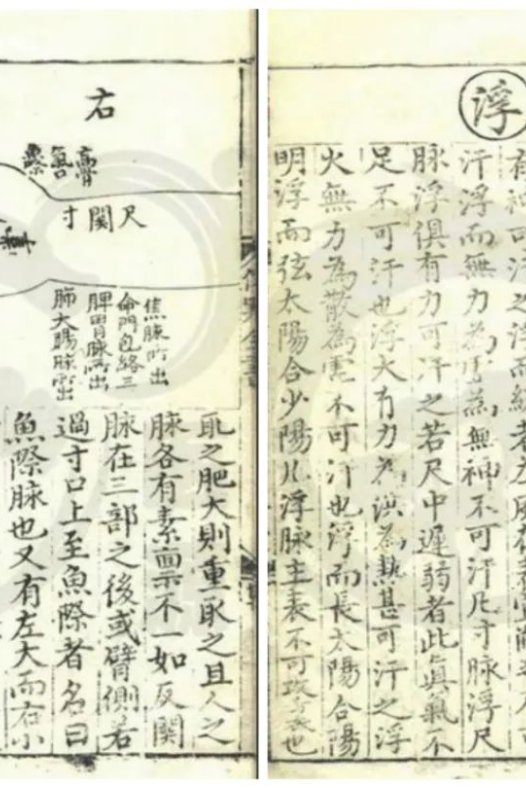 浮
有神可汗之浮而緩者
汗浮而無力為虛為無神不可汗凡寸脉浮尺
脉浮俱有力可汗之若尺中遲弱者此真氣不
足不可汗也浮大有力為洪為熱甚可汗之浮
大無力為散為虛不可汗也浮而長太陽合陽
明浮而弦太陽合少陽凡浮脉主表不可攻裏也
右
尺關寸
焦脉所出
命門包絡三
脾胃脉所出
肺大腸脉所出
取之肥大則重取之且人之
脉各有素稟不一如反關
脉在三部之後或臂側若
過寸口上至魚際者名曰
魚際脉也又有左大而右小